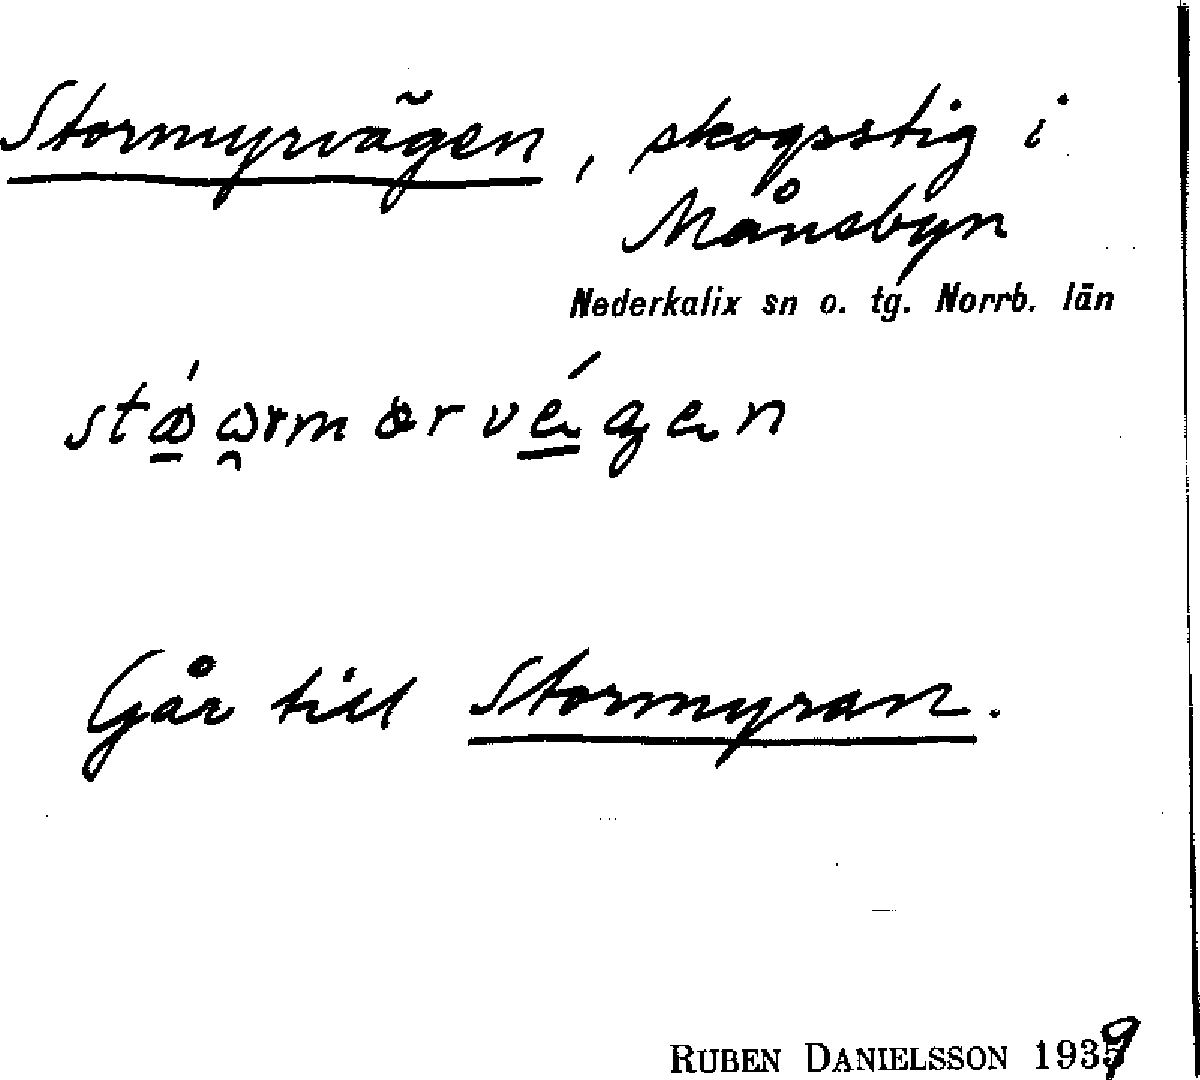 Stormyrvägen, skogsstig i
Månsbyn
Nederkalix sn o. tg. Norrb. län
Går till Stormyran.
RUBEN DANIELSSON 1939